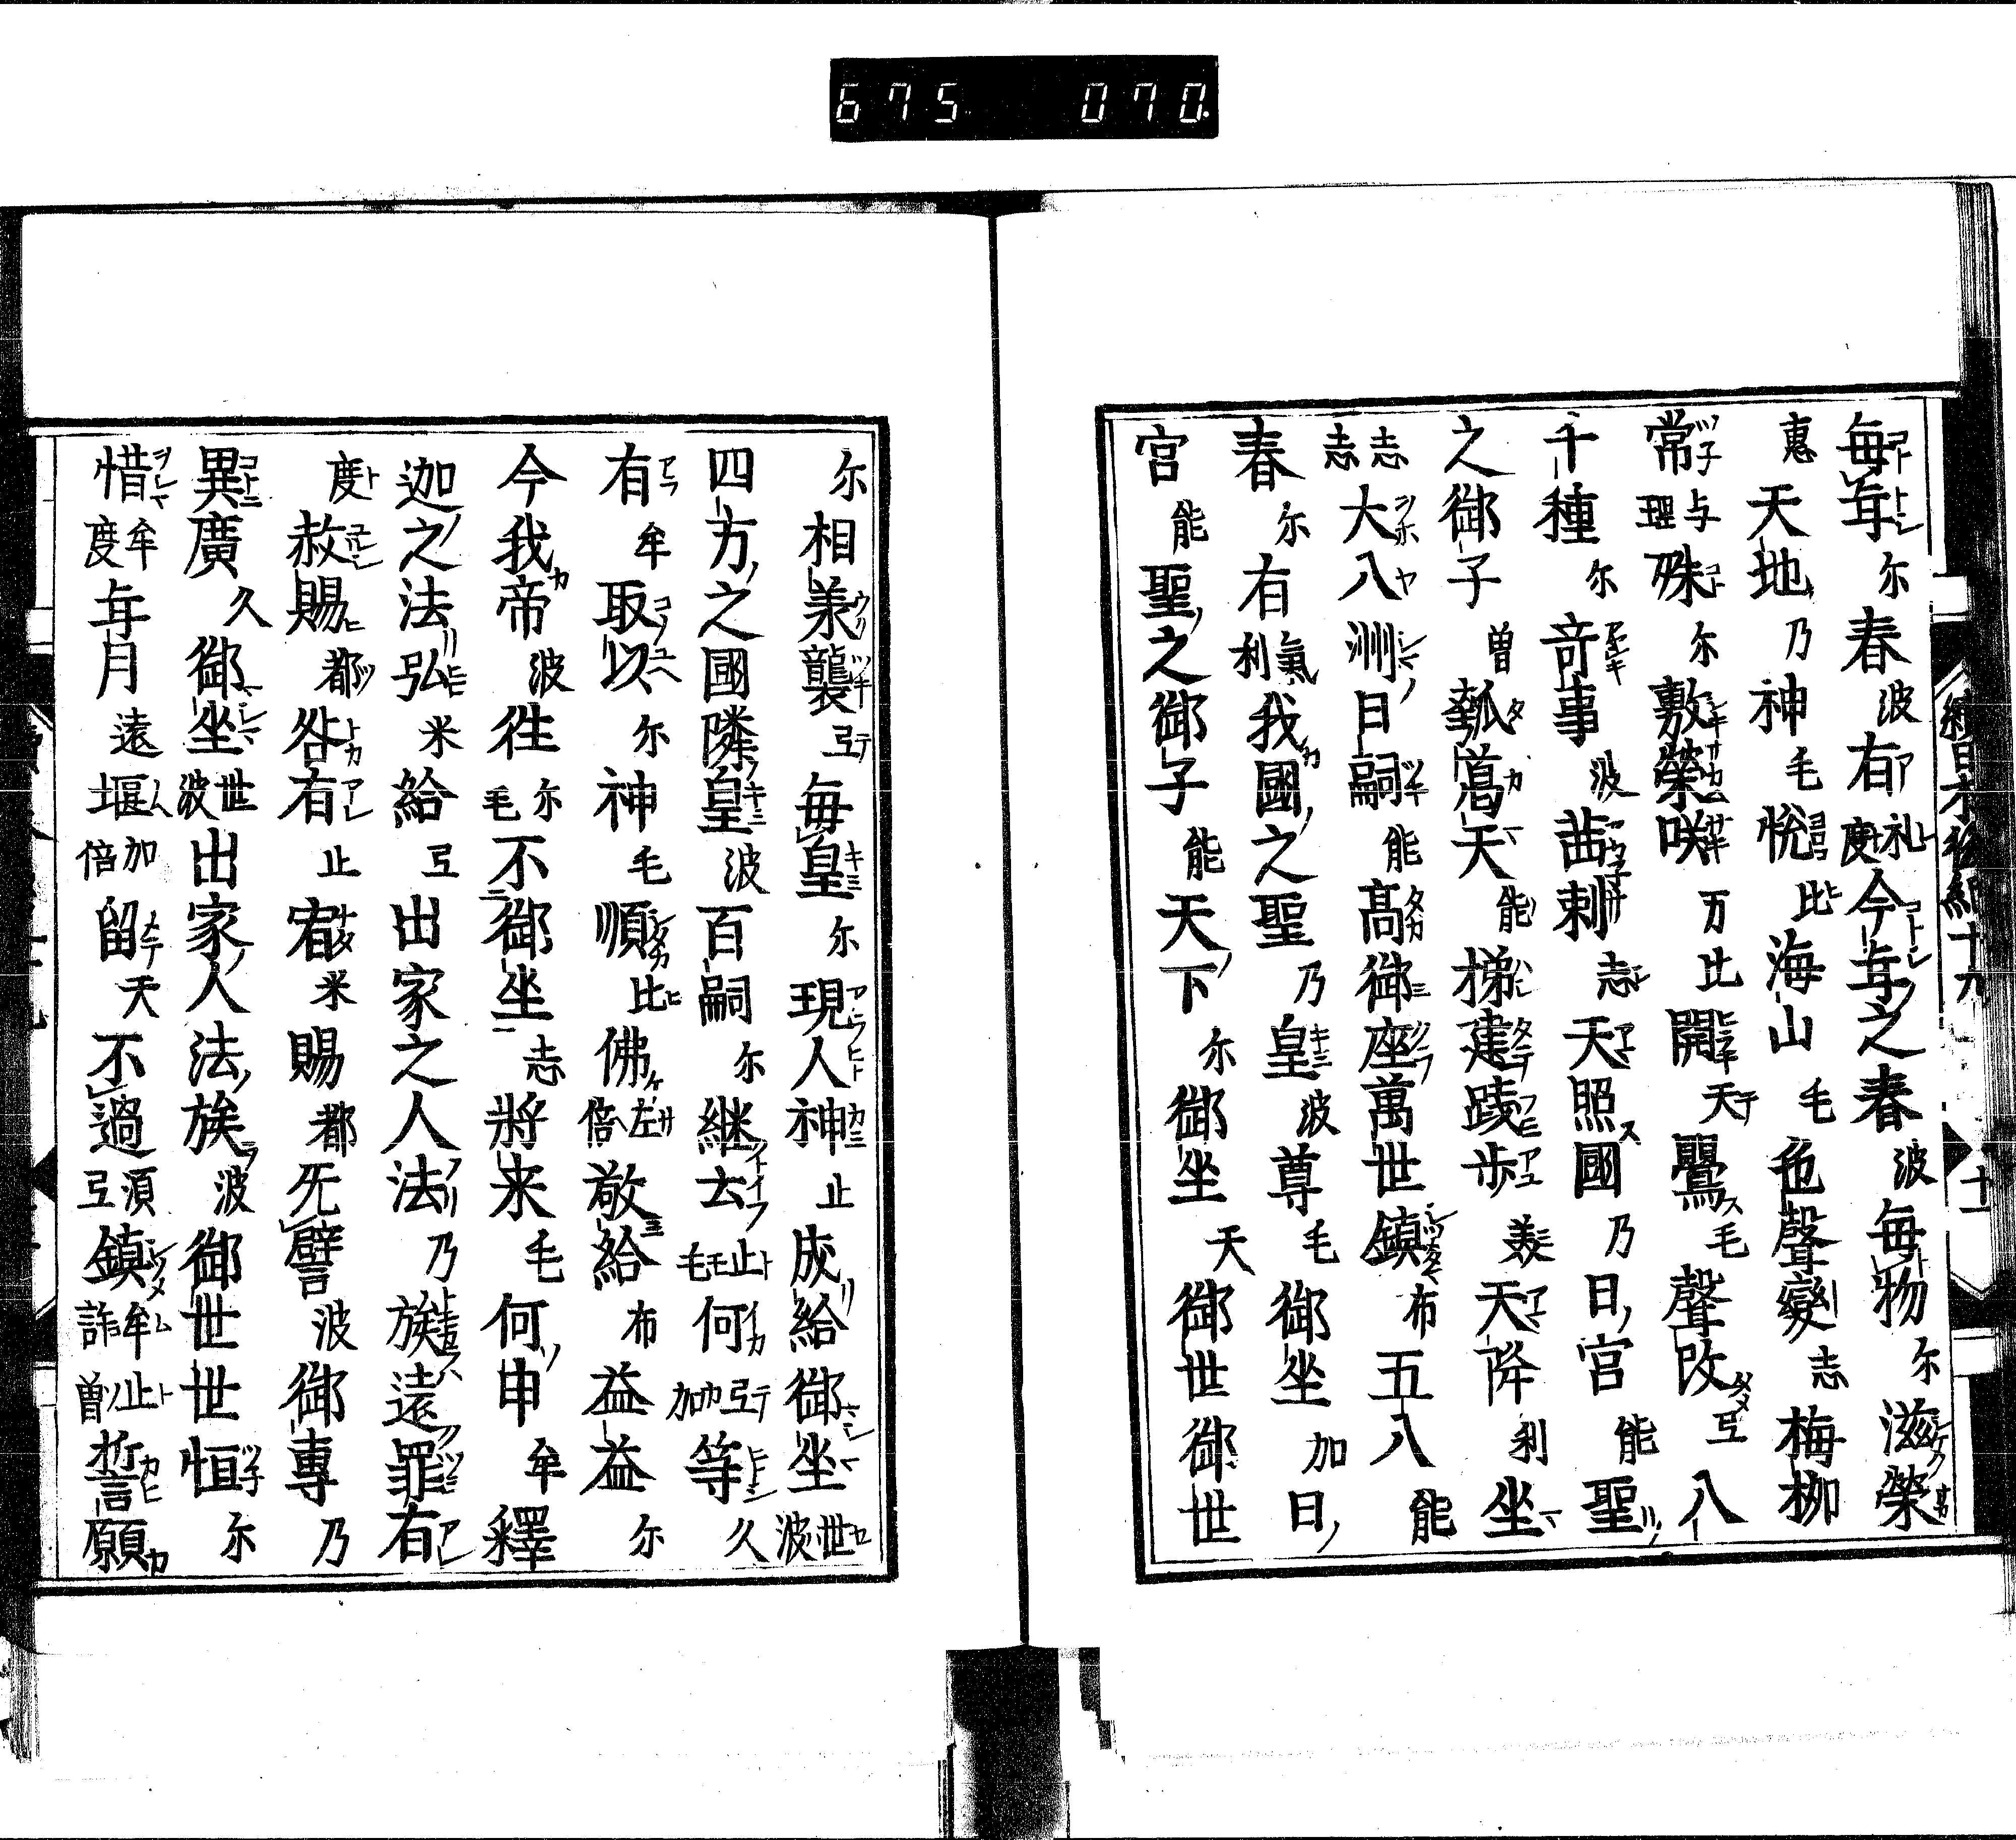 675 070
續日本後紀十九 十一
毎年尓春波有礼度今年之春波毎物尓滋榮
惠天地乃神毛悅比海山毛色聲變志梅柳
常与理殊尓敷榮咲万比開天鸎毛聲改弖八
千種尓竒事波茜刺志天照國乃日宮能聖
之御子曽瓠葛天能梯建踐歩美天降利坐
志志大八洲日嗣能髙御座萬世鎮布五八能
春尓有利氣我國之聖乃皇波尊毛御坐加日
宮能聖之御子能天下尓御坐天御世御世
尓相羕襲弖毎皇尓現人神止成給御坐世波
四方之國隣皇波百嗣尓継去止毛何弖加等久
有牟取以尓神毛順比佛左倍敬給布益益尓
今我帝波往尓毛不御坐志將来毛何申牟釋
迦之法弘米給弖出家之人法乃族遠罪有
度赦賜都咎有止宥米賜都旡譬波御專乃
異廣久御坐世波出家人法族波御世世恒尓
惜牟度年月遠堰加倍留天不過須弖鎮牟詐止曽誓願